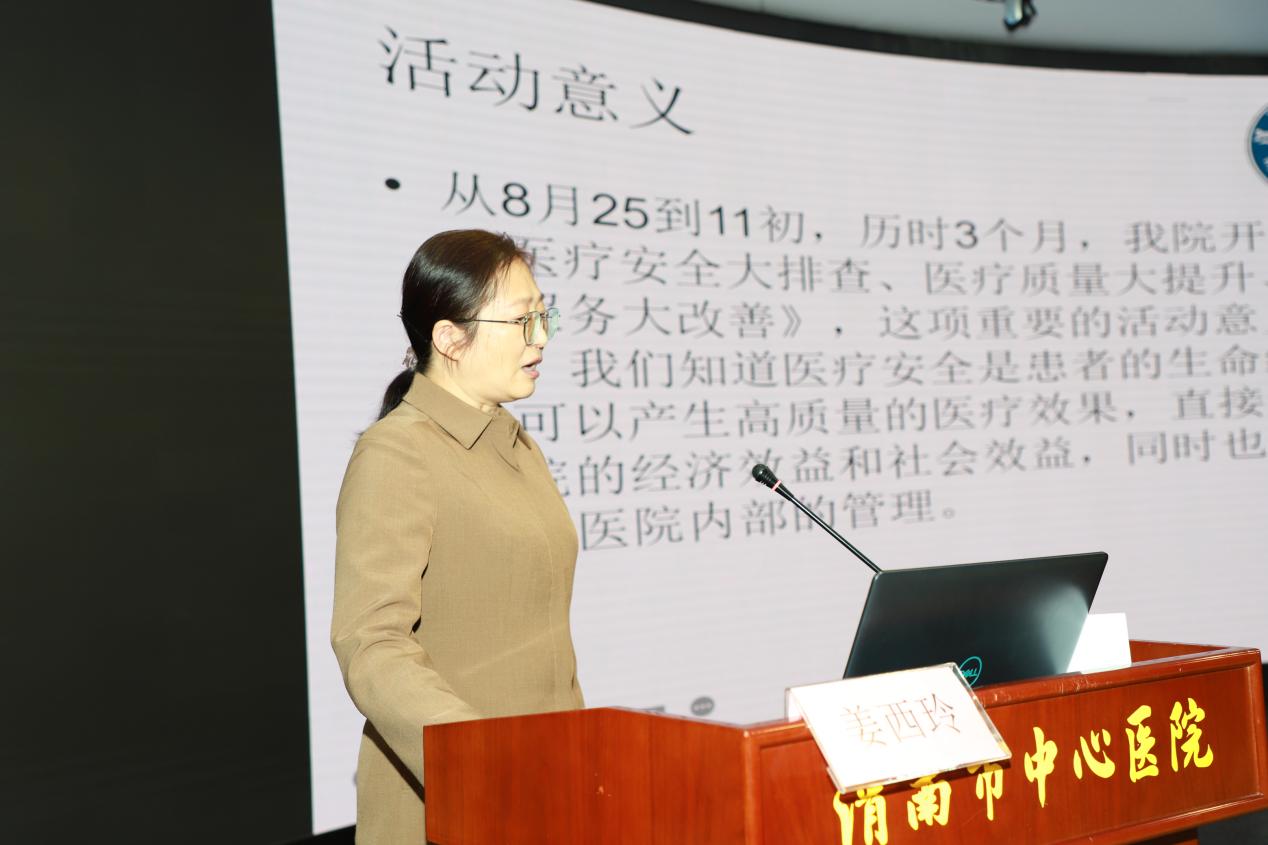 活动意义
• 从8月25到11初，历时3个月，我院开
医疗安全大排查、医疗质量大提升
服务大改善》，这项重要的活动意
我们知道医疗安全是患者的生命
可以产生高质量的医疗效果，直接
院的经济效益和社会效益，同时也
医院内部的管理。
DELL
姜西玲
渭南市中心医院